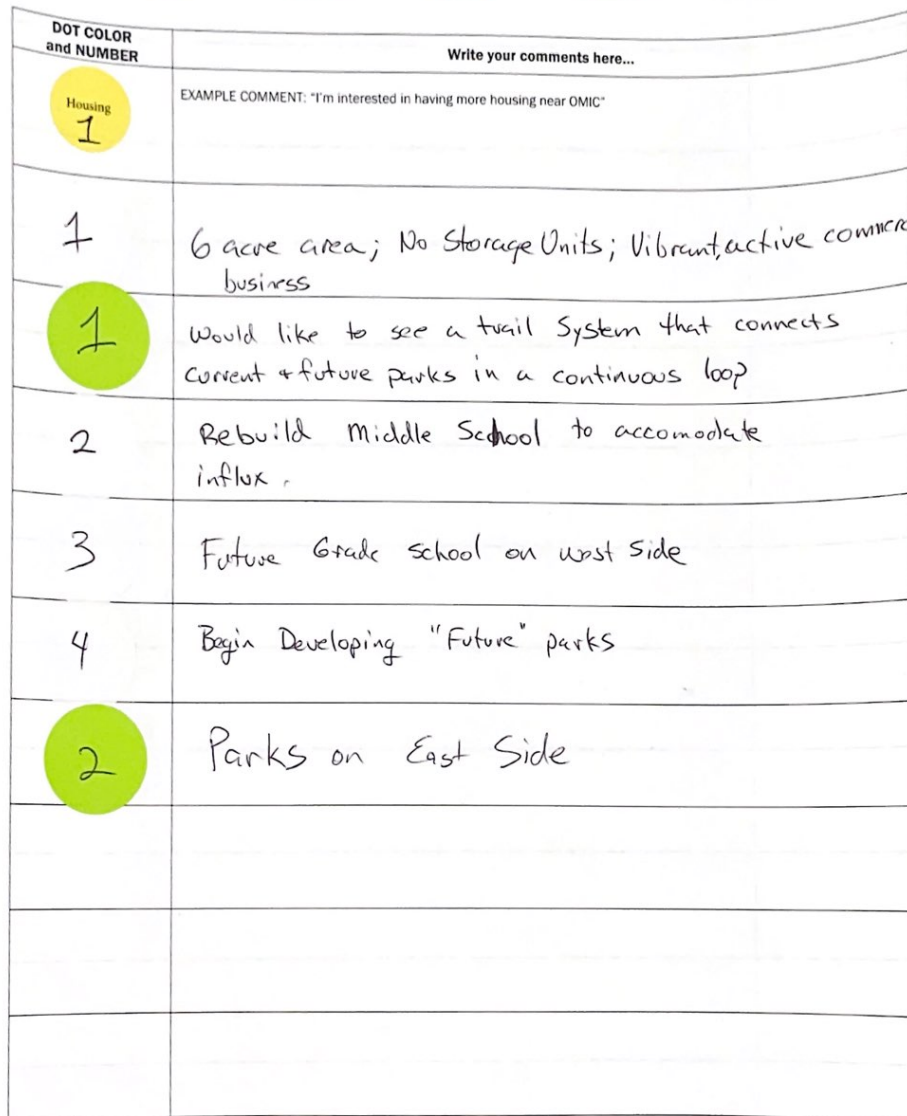 DOT COLOR
and NUMBER
Write your comments here...
Housing
1
EXAMPLE COMMENT: "I'm interested in having more housing near OMIC"
1
6 acre area; No Storage Units; Vibrant, active
business
1
Would like to see a trail System that connects
current + future parks in a continuous loop
2
Rebuild Middle School to accomodate
influx.
3
Future Grade School on west side
4
Begin Developing "Future" parks
2
Parks on East Side